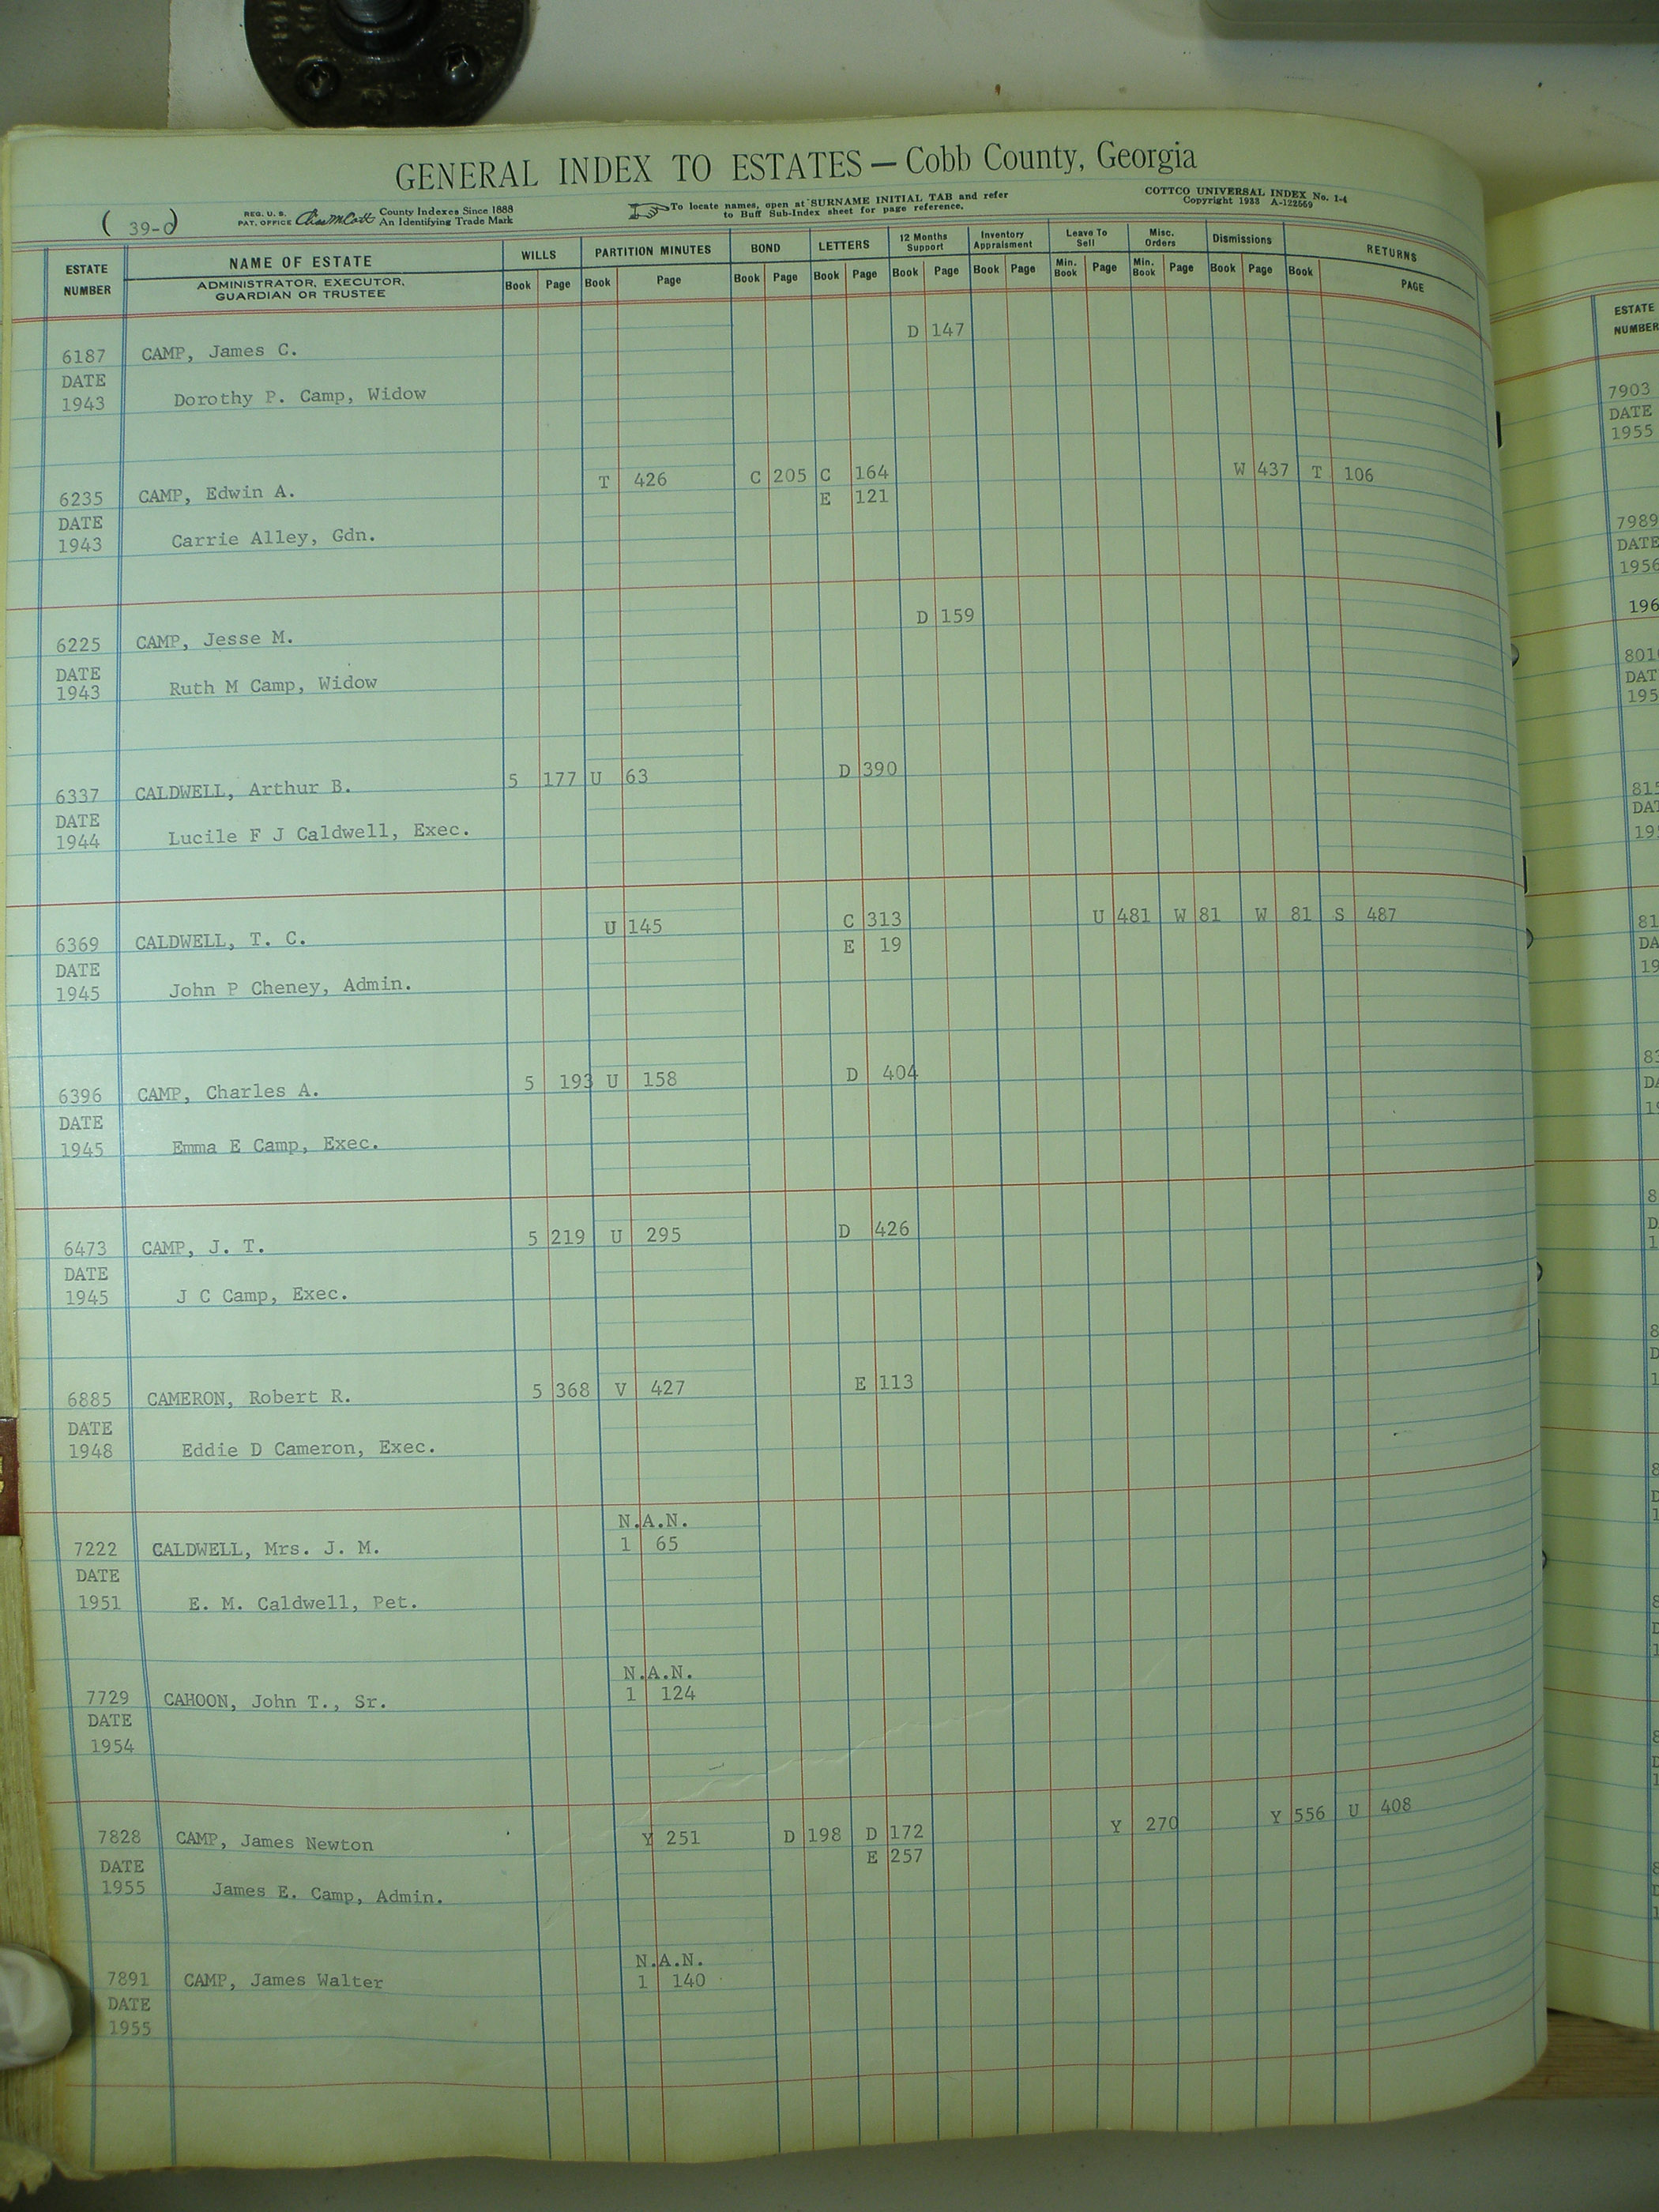 GENERAL INDEX TO ESTATES — Cobb County, Georgia
( 39-c)
REG. U. S. PAT. OFFICE County Indexes Since 1888 An Identifying Trade Mark
To locate names, open at SURNAME INITIAL TAB and refer to Buff Sub-Index sheet for page reference.
COTTCO UNIVERSAL INDEX No. 1-4
Copyright 1933 A-122569
ESTATE NUMBER NAME OF ESTATE WILLS PARTITION MINUTES BOND LETTERS 12 Months Support Inventory Appraisment Leave To Sell Misc. Orders Dismissions RETURNS
ADMINISTRATOR, EXECUTOR, GUARDIAN OR TRUSTEE Book Page Book Page Book Page Book Page Book Page Book Page Min. Book Page Min. Book Page Book Page Book PAGE
6187 CAMP, James C. D 147
DATE
1943 Dorothy P. Camp, Widow
6235 CAMP, Edwin A. T 426 C 205 C 164 W 437 T 106
E 121
DATE
1943 Carrie Alley, Gdn.
6225 CAMP, Jesse M. D 159
DATE
1943 Ruth M Camp, Widow
6337 CALDWELL, Arthur B. 5 177 U 63 D 390
DATE
1944 Lucile F J Caldwell, Exec.
6369 CALDWELL, T. C. U 145 C 313 U 481 W 81 W 81 S 487
E 19
DATE
1945 John P Cheney, Admin.
6396 CAMP, Charles A. 5 193 U 158 D 404
DATE
1945 Emma E Camp, Exec.
6473 CAMP, J. T. 5 219 U 295 D 426
DATE
1945 J C Camp, Exec.
6885 CAMERON, Robert R. 5 368 V 427 E 113
DATE
1948 Eddie D Cameron, Exec.
N.A.N.
7222 CALDWELL, Mrs. J. M. 1 65
DATE
1951 E. M. Caldwell, Pet.
N.A.N.
7729 CAHOON, John T., Sr. 1 124
DATE
1954
7828 CAMP, James Newton Y 251 D 198 D 172 Y 270 Y 556 U 408
E 257
DATE
1955 James E. Camp, Admin.
N.A.N.
7891 CAMP, James Walter 1 140
DATE
1955
ESTATE
NUMBER
7903
DATE
1955
7989
DATE
1956